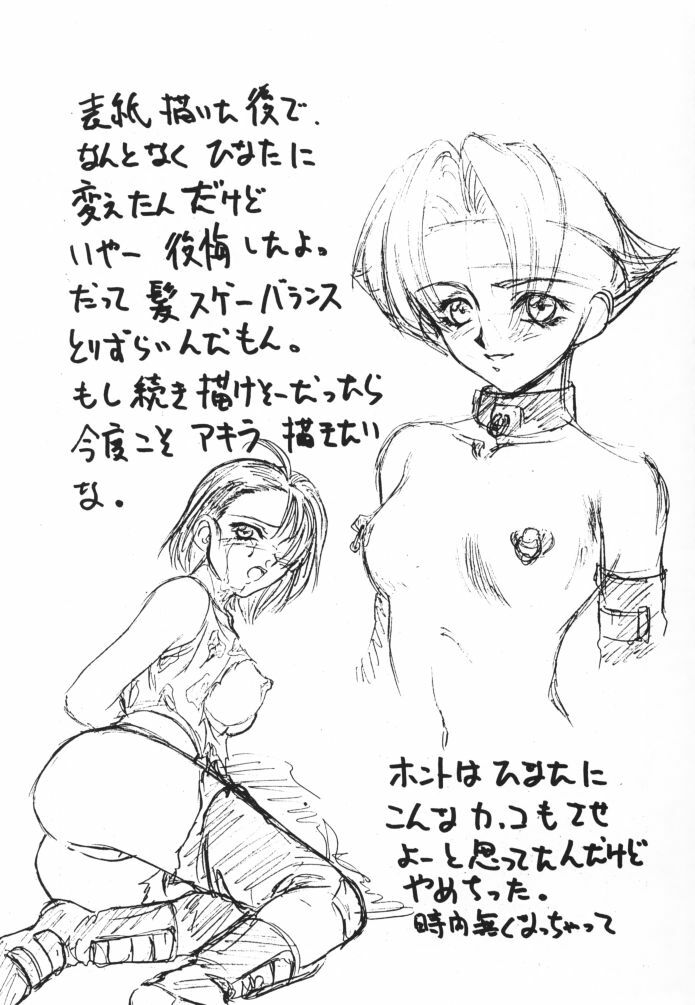 表紙描いた後で、
なんとなくひなたに
変えたんだけど
いやー後悔したよ。
だって髪スゲーバランス
とりずらいんだもん。
もし続き描けそーだったら
今度こそアキラ描きたい
な。
ホントはひなたに
こんなカッコもさせ
よーと思ってたんだけど
やめちった。
時間無くなっちゃって